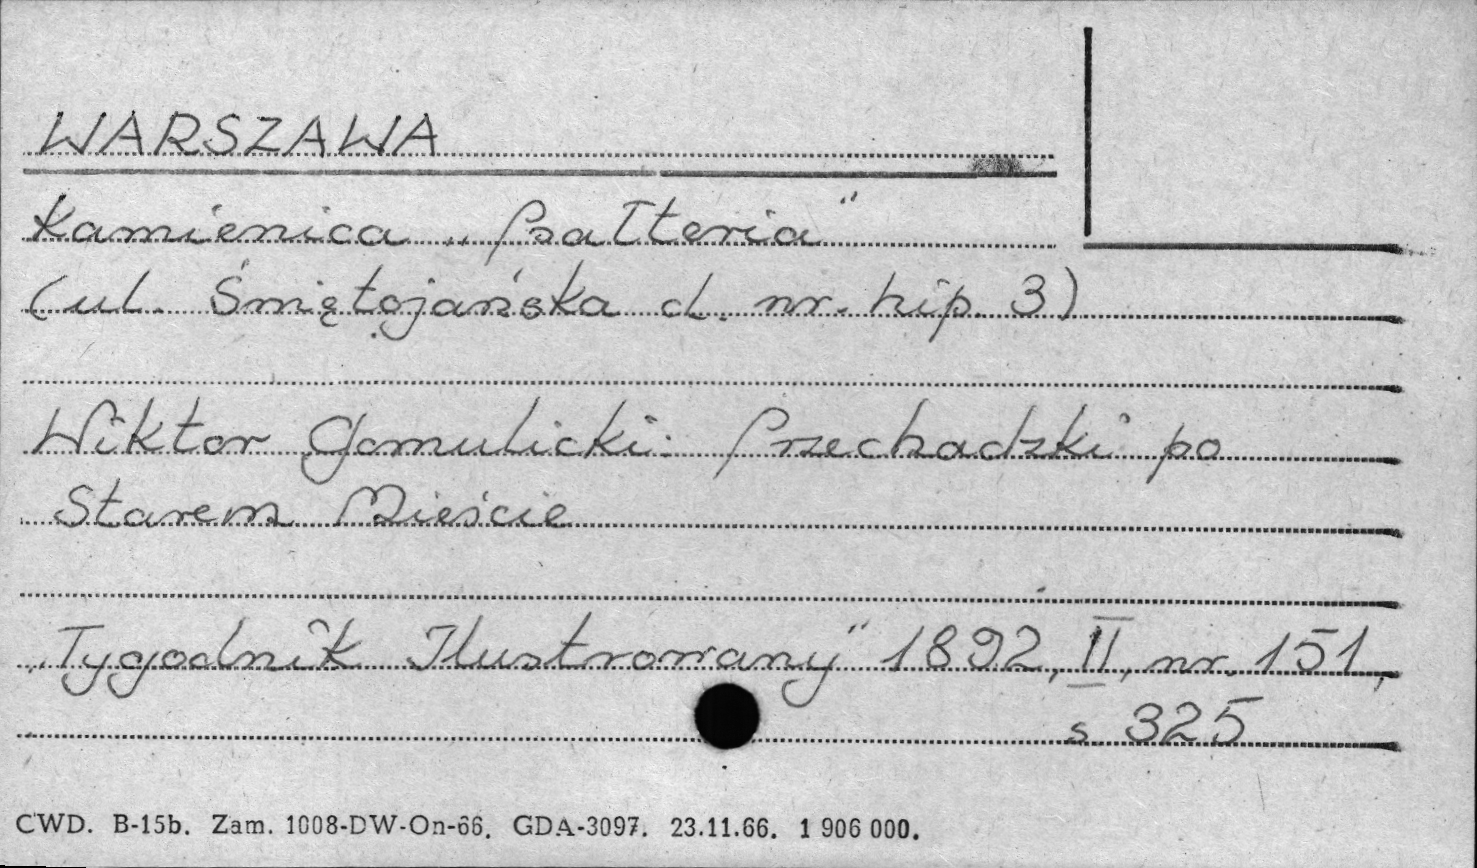 WARSZAWA
Kamienica „Psałteria"
(ul. Świętojańska d. nr. hip. 3)
Wiktor Gomulicki: Przechadzki po
Starem Mieście
„Tygodnik Ilustrowany" 1892, II, nr. 151,
s. 325
CWD. B-15b. Zam. 1008-DW-On-66. GDA-3097. 23.11.66. 1 906 000.